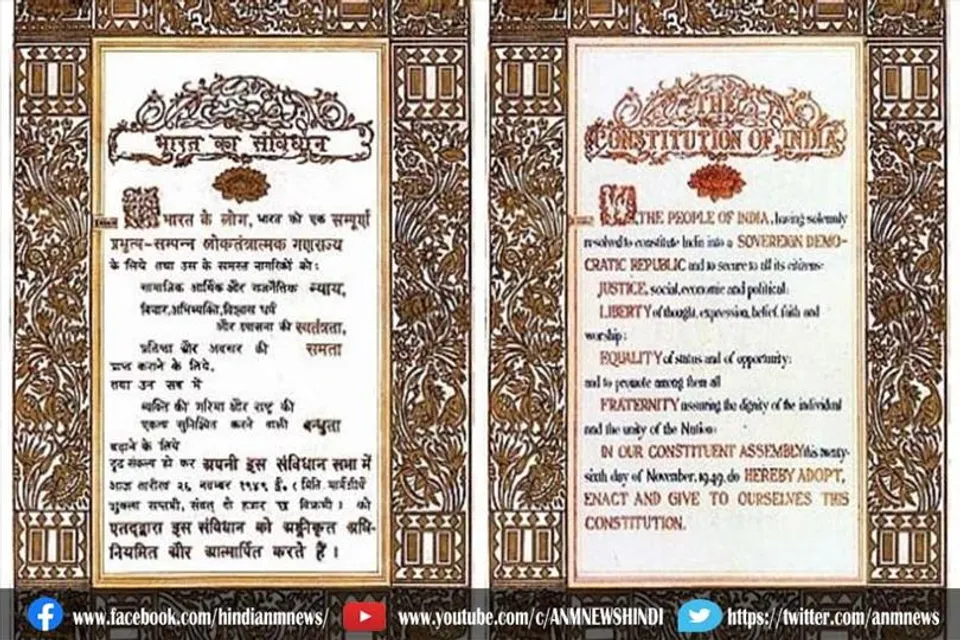 भारत का संविधान
भारत के लोग, भारत को एक सम्पूर्ण
प्रभुत्व-सम्पन्न लोकतंत्रात्मक गणराज्य
के लिये तथा उस के समस्त नागरिकों को:
सामाजिक आर्थिक और राजनैतिक न्याय,
विचार, अभिव्यक्ति, विश्वास धर्म
और उपासना की स्वतंत्रता,
प्रतिष्ठा और अवसर की समता
प्राप्त कराने के लिये,
तथा उन सब में
व्यक्ति की गरिमा और राष्ट्र की
एकता सुनिश्चित करने वाली बन्धुता
बढ़ाने के लिये
दृढ़ संकल्प हो कर अपनी इस संविधान सभा में
आज तारीख २६ नवम्बर १९४९ ई. (मिति मार्गशीर्ष
शुक्ला सप्तमी, संवत् दो हजार छ विक्रमी) को
एतद्द्वारा इस संविधान को अङ्गीकृत अधि-
नियमित और आत्मार्पित करते हैं।
THE
CONSTITUTION OF INDIA
WE, THE PEOPLE OF INDIA, having solemnly
resolved to constitute India into a SOVEREIGN DEMO-
CRATIC REPUBLIC and to secure to all its citizens:
JUSTICE, social, economic and political;
LIBERTY of thought, expression, belief, faith and
worship;
EQUALITY of status and of opportunity;
and to promote among them all
FRATERNITY assuring the dignity of the individual
and the unity of the Nation;
IN OUR CONSTITUENT ASSEMBLY this twenty-
sixth day of November, 1949, do HEREBY ADOPT,
ENACT AND GIVE TO OURSELVES THIS
CONSTITUTION.
www.facebook.com/hindianmnews/ www.youtube.com/c/ANMNEWSHINDI https://twitter.com/anmnews